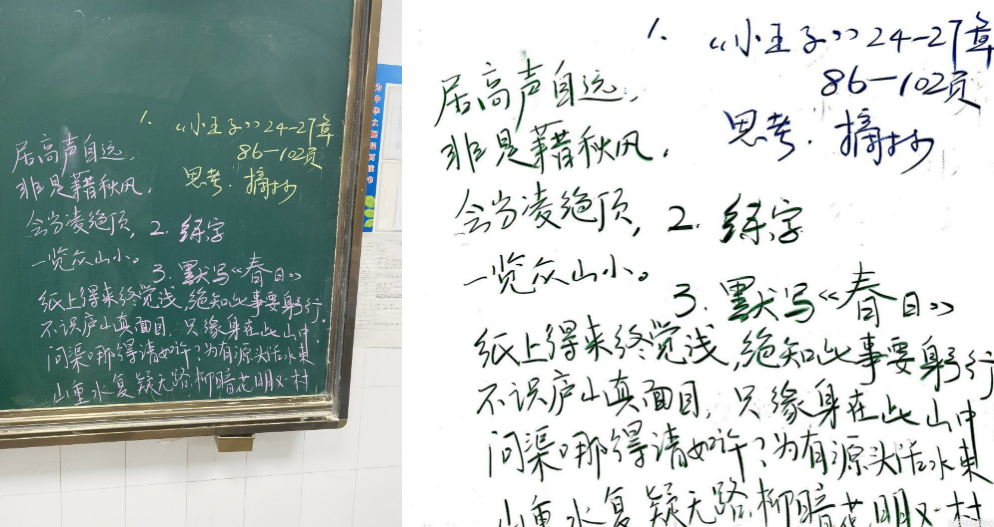 1. 《小王子》24-27章
86-102页
思考.摘抄
居高声自远,
非是藉秋风,
会当凌绝顶,
一览众山小。
2. 练字
3. 默写《春日》
纸上得来终觉浅,绝知此事要躬行
不识庐山真面目,只缘身在此山中
问渠哪得清如许?为有源头活水来
山重水复疑无路,柳暗花明又一村
1. 《小王子》24-27章
86-102页
思考.摘抄
居高声自远,
非是藉秋风,
会当凌绝顶,
一览众山小。
2. 练字
3. 默写《春日》
纸上得来终觉浅,绝知此事要躬行
不识庐山真面目,只缘身在此山中
问渠哪得清如许?为有源头活水来
山重水复疑无路,柳暗花明又一村